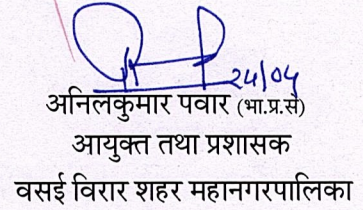 24/04
अनिलकुमार पवार (भा.प्र.से)
आयुक्त तथा प्रशासक
वसई विरार शहर महानगरपालिका